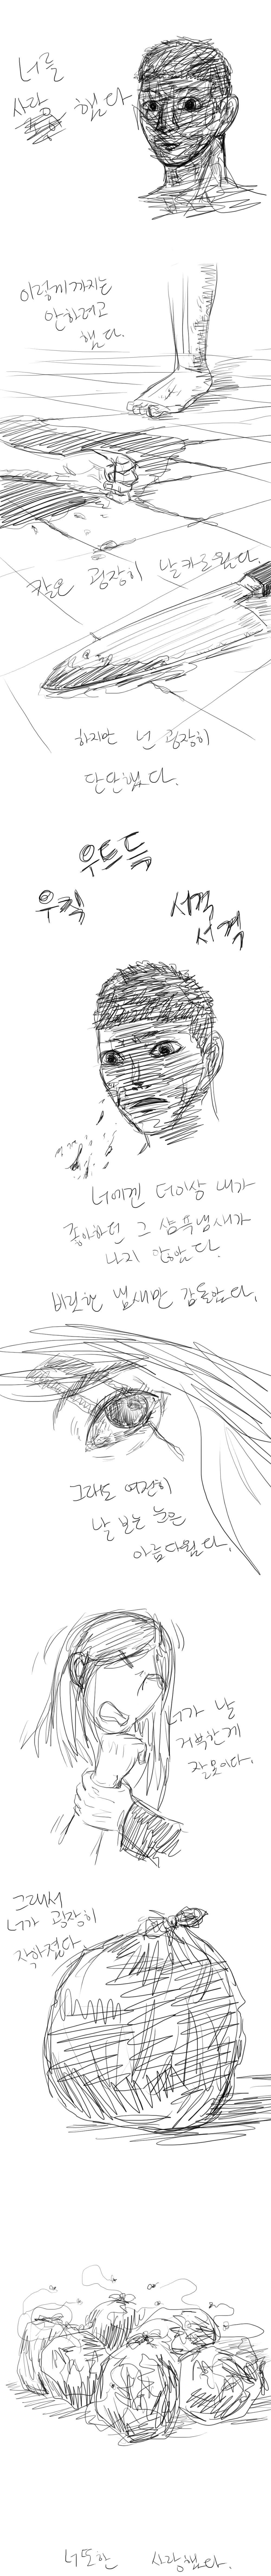 너를
사랑 했다
이렇게까지는
안하려고
했다.
칼은 굉장히 날카로웠다.
하지만 넌 굉장히
단단했다.
우드득
우직
서걱
서걱
너에겐 더이상 내가
좋아하던 그 샴푸냄새가
나지 않았다.
비릿한 냄새만 감돌았다.
그래도 여전히
날 보는 눈은
아름다웠다.
너가 날
거부한게
잘못이다.
그래서
너가 굉장히
작아졌다.
너또한 사랑했다.